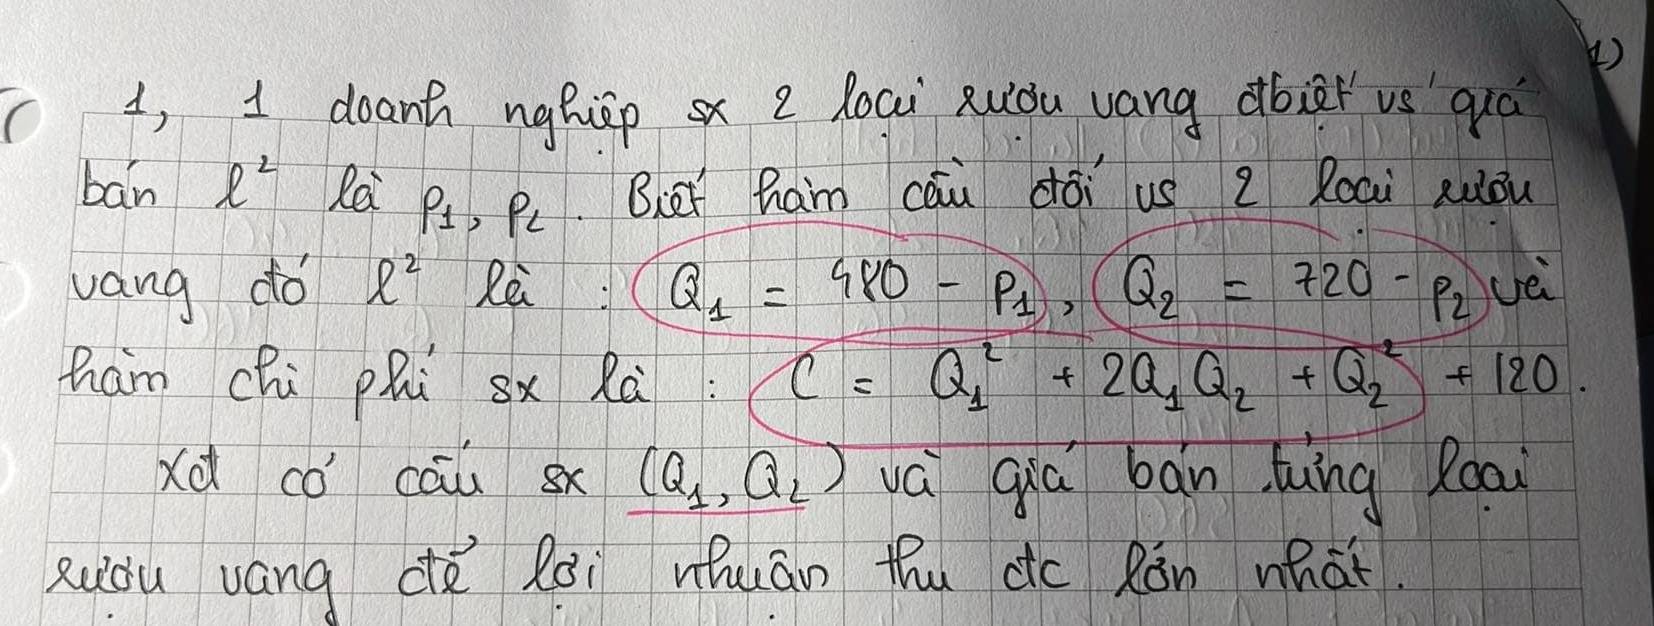 1)
1, 1 doanh nghiệp sx 2 loại rượu vang đbiệt vs giá
bán l² là P₁, P₂. Biết hàm cầu đối vs 2 loại rượu
vang đó l² là : Q₁ = 480 - P₁, Q₂ = 720 - P₂ và
hàm chi phí sx là : C = Q₁² + 2Q₁Q₂ + Q₂² + 120.
Xđ cơ cấu sx (Q₁, Q₂) và giá bán từng loại
rượu vang để lợi nhuận thu đc lớn nhất.